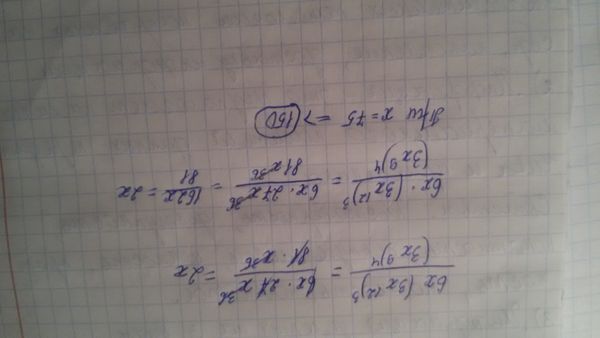 6x (3x¹²)³ / (3x⁹)⁴ = 6x · 27 x³⁶ / 81 · x³⁶ = 2x
6x · (3x¹²)³ / (3x⁹)⁴ = 6x · 27x³⁶ / 81x³⁶ = 162x / 81 = 2x
При x = 75 => 150